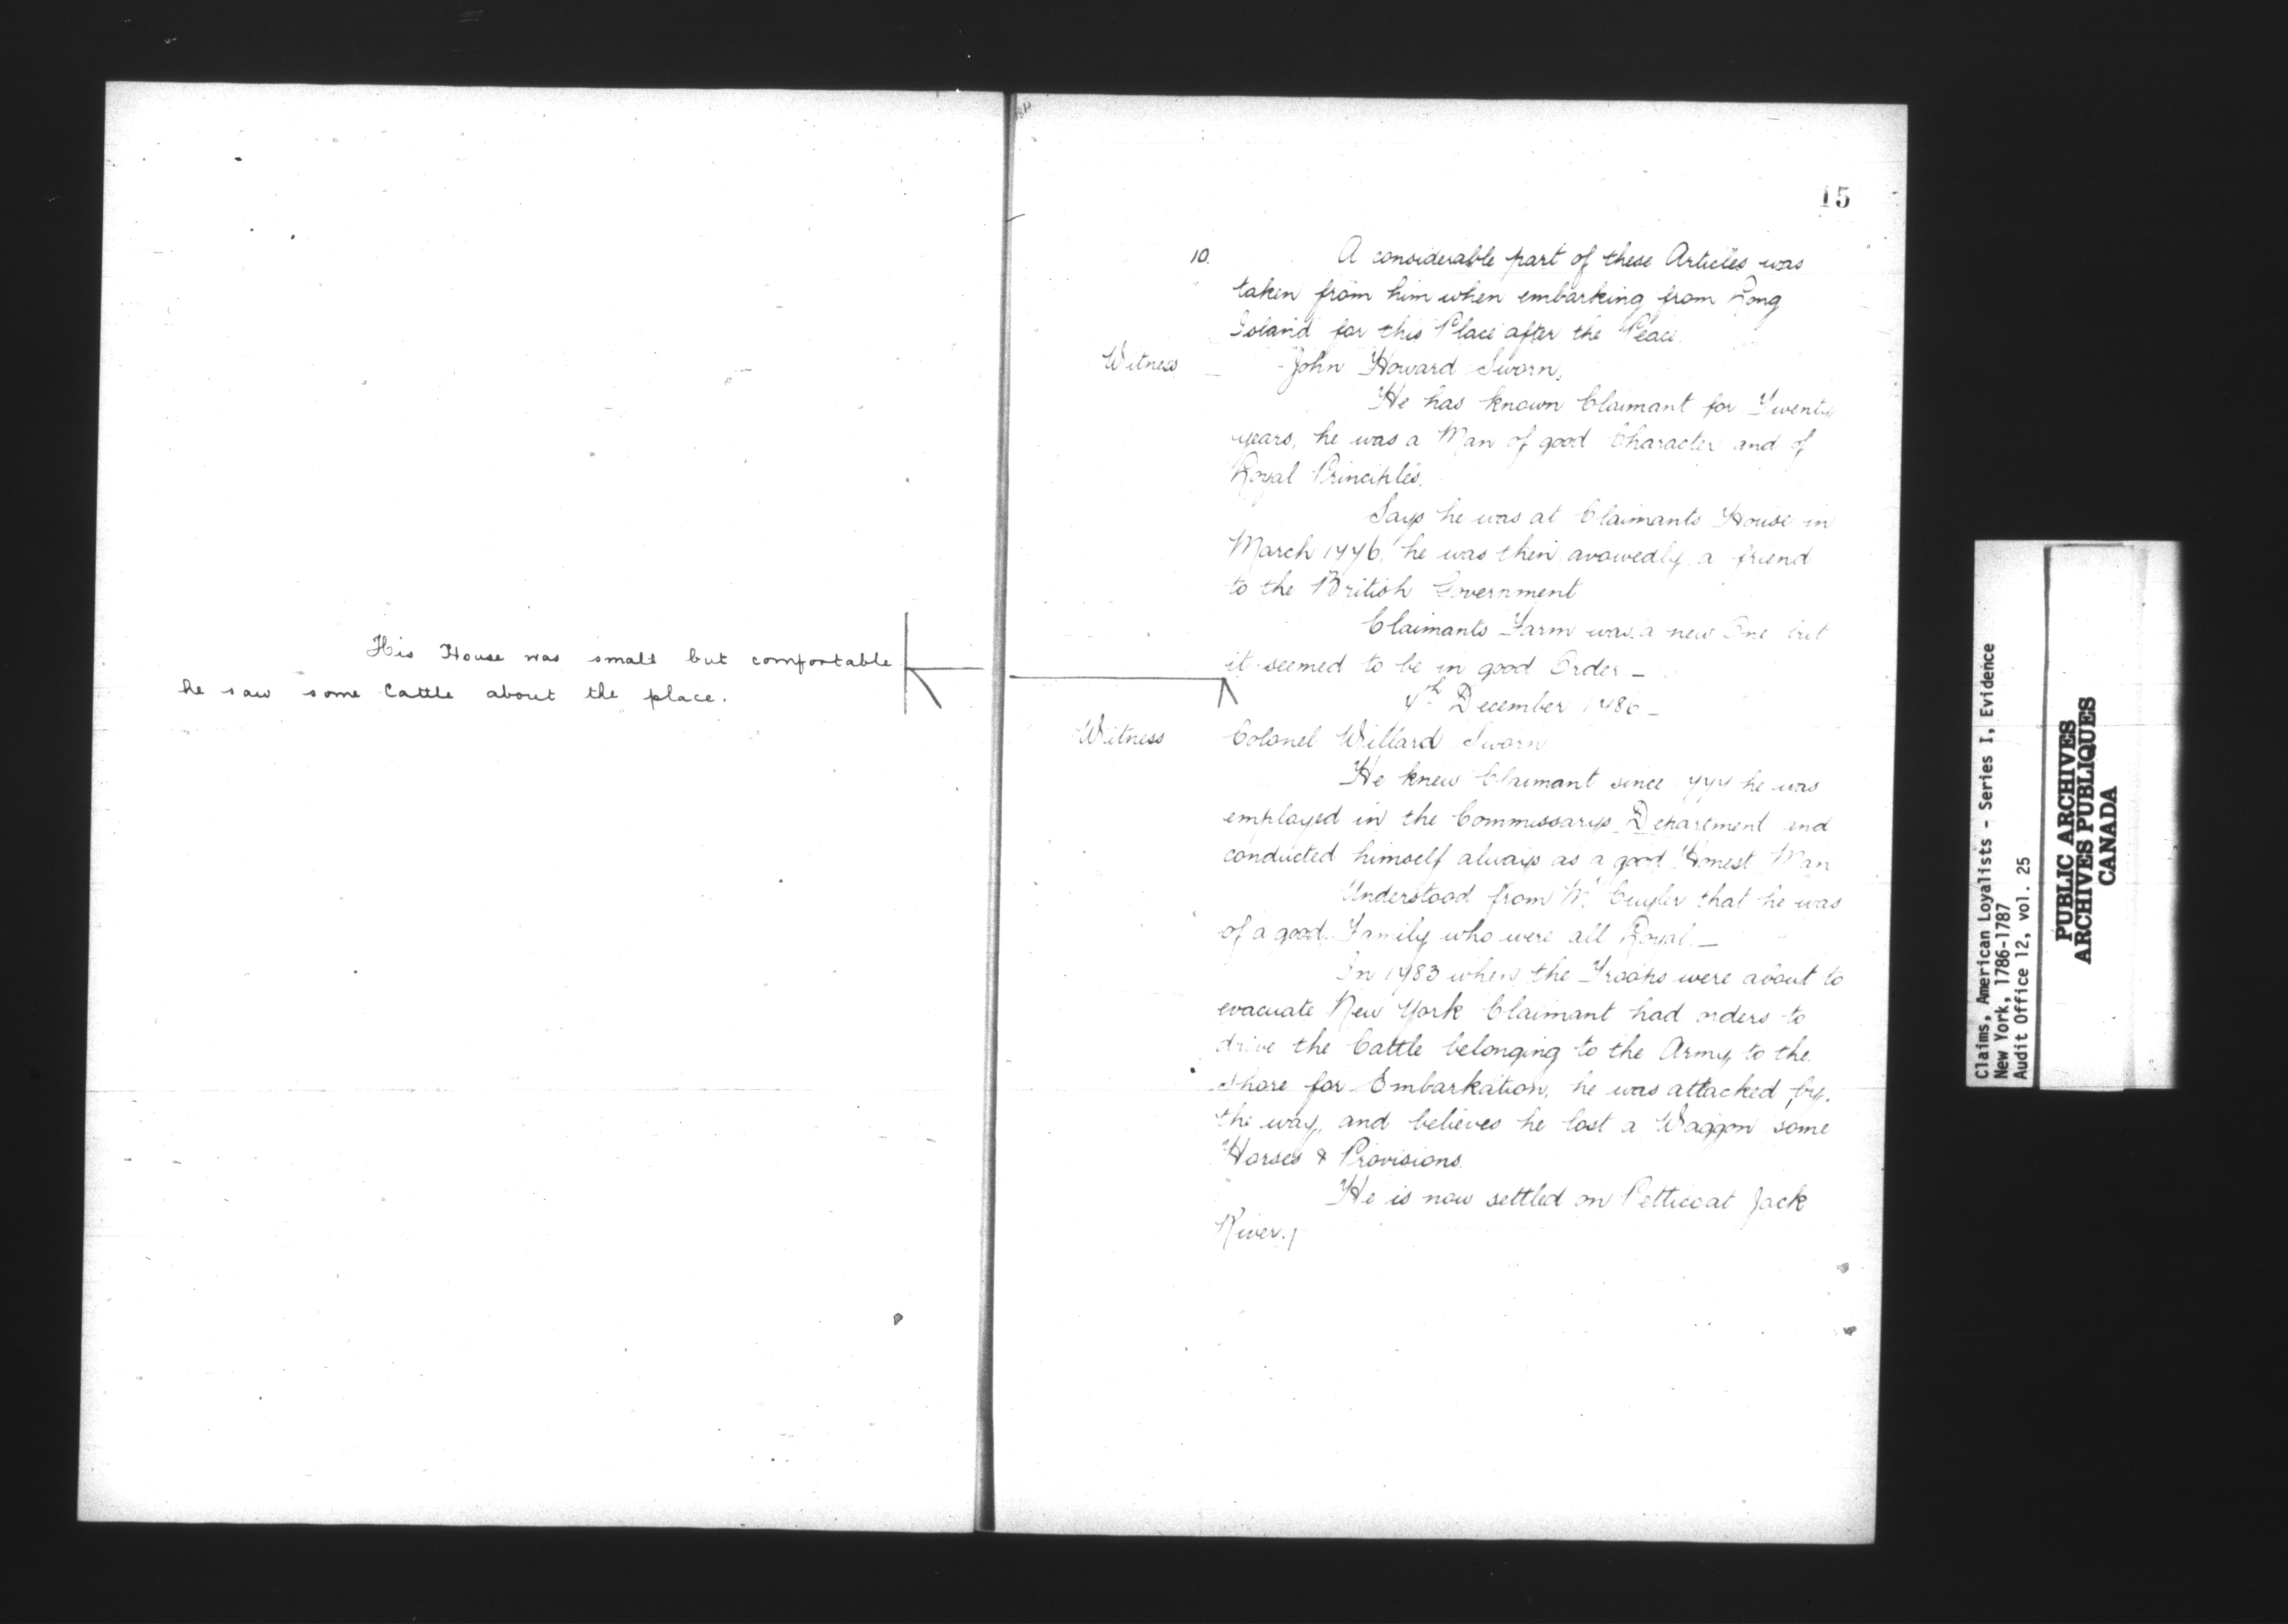 His House was small but comfortable
he saw some Cattle about the place.
15
10. A considerable part of these Articles was
taken from him when embarking from Long
Island for this Place after the Peace.
Witness _ John Howard Sworn,
He has known Claimant for Twenty
years, he was a Man of good Character and of
Loyal Principles.
Says he was at Claimants House in
March 1776, he was then avowedly a friend
to the British Government
Claimants Farm was a new One but
it seemed to be in good Order _
December 1786 _
Witness Colonel Willard Sworn
He knew Claimant since he was
employed in the Commissarys Department and
conducted himself always as a good Honest Man
Understood from Mr Cuyler that he was
of a good Family who were all Loyal _
In 1783 when the Troops were about to
evacuate New York Claimant had orders to
drive the Cattle belonging to the Army to the
Shore for Embarkation, he was attacked by
the way, and believes he lost a Waggon some
Horses & Provisions.
He is now settled on Petticoat Jack
River.
Claims, American Loyalists - Series I, Evidence
New York, 1786-1787
Audit Office 12, vol. 25
PUBLIC ARCHIVES
ARCHIVES PUBLIQUES
CANADA